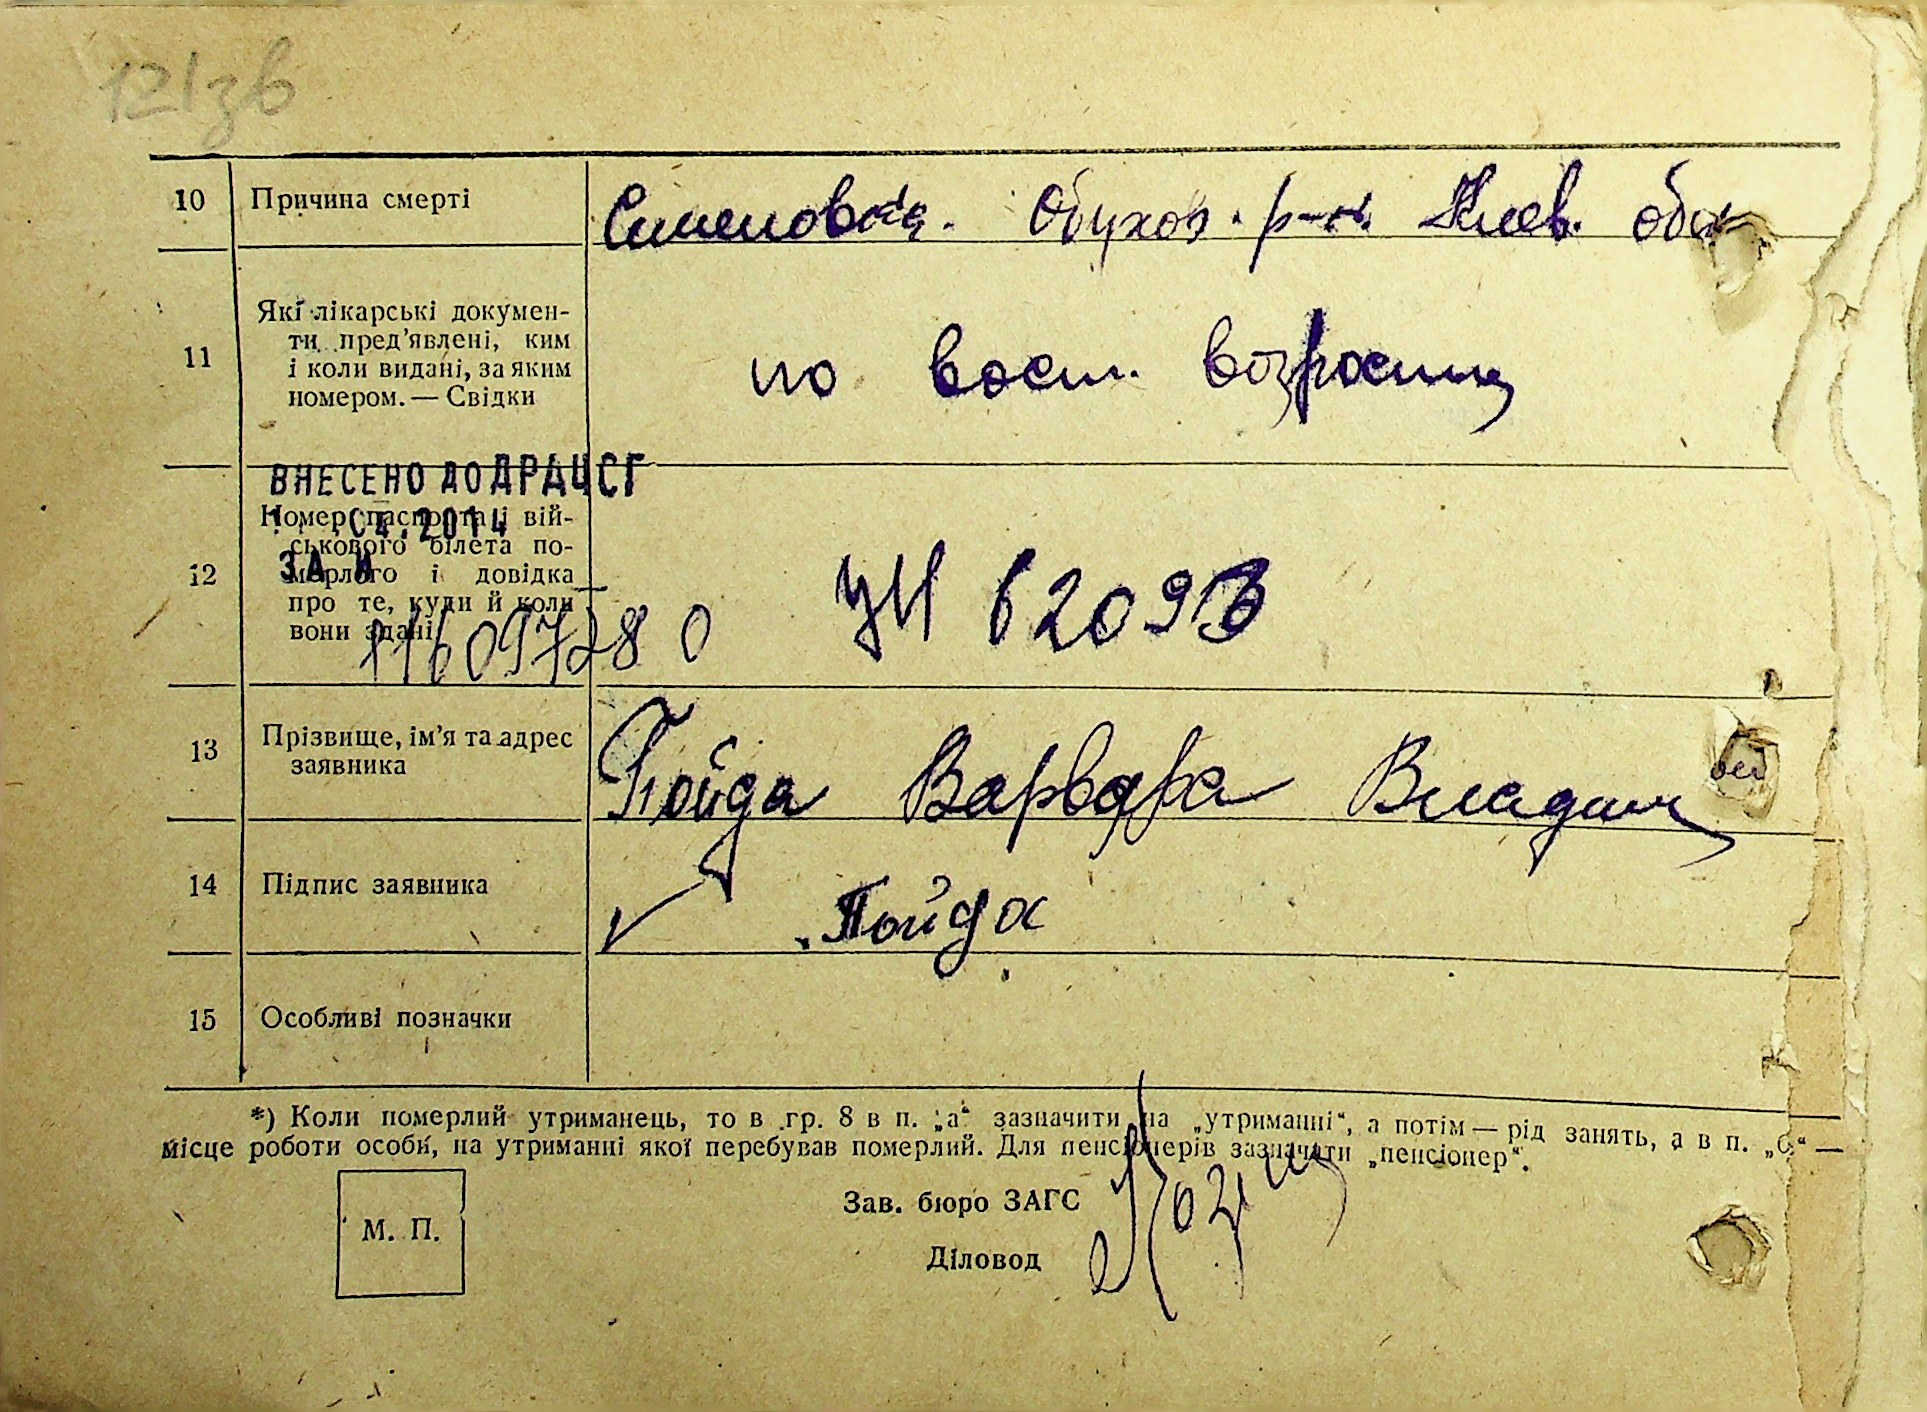 12/зв
10 Причина смерті
Обухов. р-н. Киев. обл
11 Які лікарські докумен-
ти пред’явлені, ким
і коли видані, за яким
номером. — Свідки
по восст. возрасту
ВНЕСЕНО ДО ДРАЦСГ
2014
ЗА №
12 Номер паспорта і вій-
ськового білета по-
мерлого і довідка
про те, куди й коли
вони здані
11609728 0
УН 62093
13 Прізвище, ім’я та адрес
заявника
Пойда Варвара Владим
14 Підпис заявника
Пойда
15 Особливі позначки
*) Коли померлий утриманець, то в гр. 8 в п. „а“ зазначити „на утриманні“, а потім — рід занять, а в п. „б“ —
місце роботи особи, на утриманні якої перебував померлий. Для пенсіонерів зазначати „пенсіонер“.
Зав. бюро ЗАГС
М. П.
Діловод